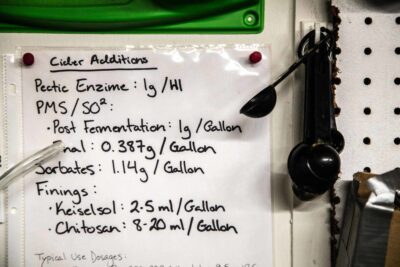 Cider Additions
Pectic Enzime : 1g/Hl
PMS/SO²:
• Post Fermentation : 1g/Gallon
nal : 0.387g/Gallon
Sorbates : 1.14g/Gallon
Finings :
• Keiselsol : 2-5 ml/Gallon
• Chitosan : 8-20 ml/Gallon
Typical Use Dosages: